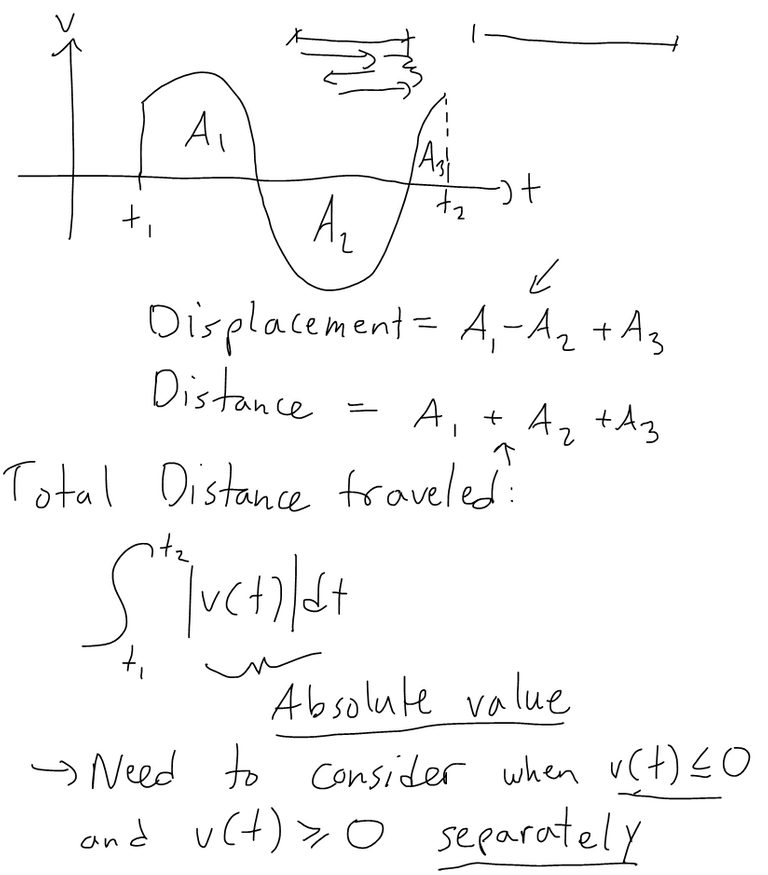 v
A₁
A₃
t₁
t₂
t
A₂
Displacement = A₁ - A₂ + A₃
Distance = A₁ + A₂ + A₃
Total Distance traveled:
∫_{t₁}^{t₂} |v(t)| dt
Absolute value
→ Need to consider when v(t) ≤ 0
and v(t) ≥ 0 separately